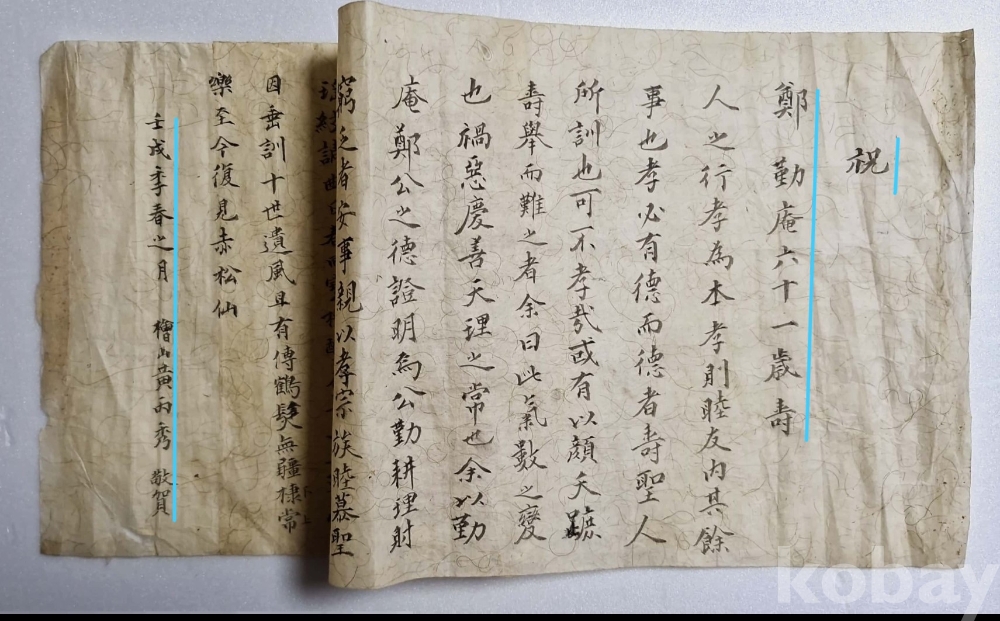 祝
鄭 勤庵六十一歳壽
人之行孝為本孝則睦友内其餘
事也孝必有德而德者壽聖人
所訓也可不孝哉或有以顔夭蹠
壽舉而難之者余曰此氣數之變
也禍惡慶善天理之常也余以勤
庵鄭公之德證明焉公勤耕理財
窮乏者安事親以孝宗族睦慕聖
因垂訓十世遺風且有傳鶴髮無疆棣常
樂至今復見赤松仙
壬戌季春之月 檜山黃丙秀 敬賀
kobay